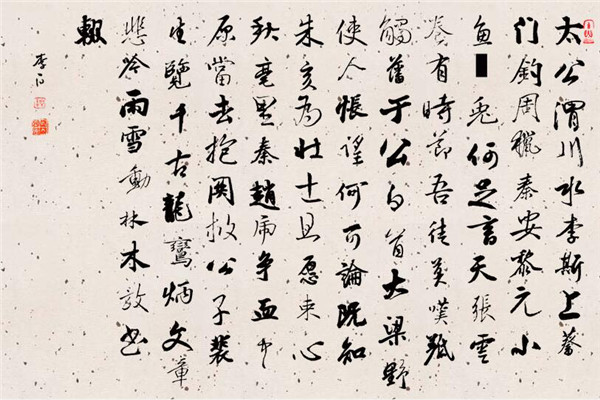 太公渭川水李斯上蔡
门钓周獵秦安黎元小
鱼兔何足言天張雲
卷有時節吾徒莫嘆羝
觸藩于公白首大梁野
使人悵望何可論既知
朱亥为壮士且愿束心
秋毫里秦趙虎争血中
原當去抱関救公子裴
生覽千古龍鸞炳文章
悲吟雨雪動林木放书
輟
李白